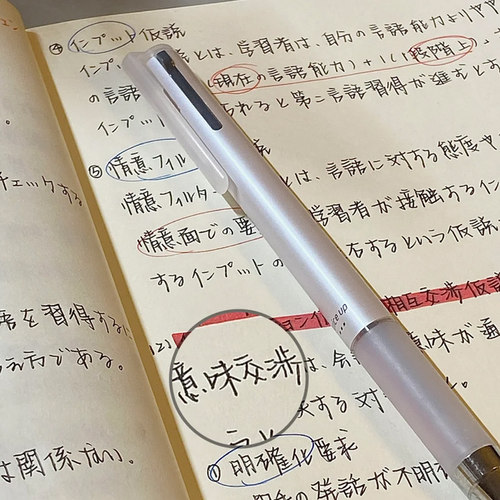 ④ インプット仮説
インプ とは、学習者は、自分の言語能力よりやや
の言語 (現在の言語能力)+i(い段階上)
られると第二言語習得が進むとす
インプット
⑤ 情意フィル
情意フィルター は、言語に対する態度や
情意面での要 学習者が接触するイン
するインプットの 右するという仮説
ョン 相互交渉仮説
(2) 意味交渉は、会 意味が通
する対
① 明確化要求
の発話が不明
。
チェックする
語を習得する
る方である。
は関係ない。
ice up